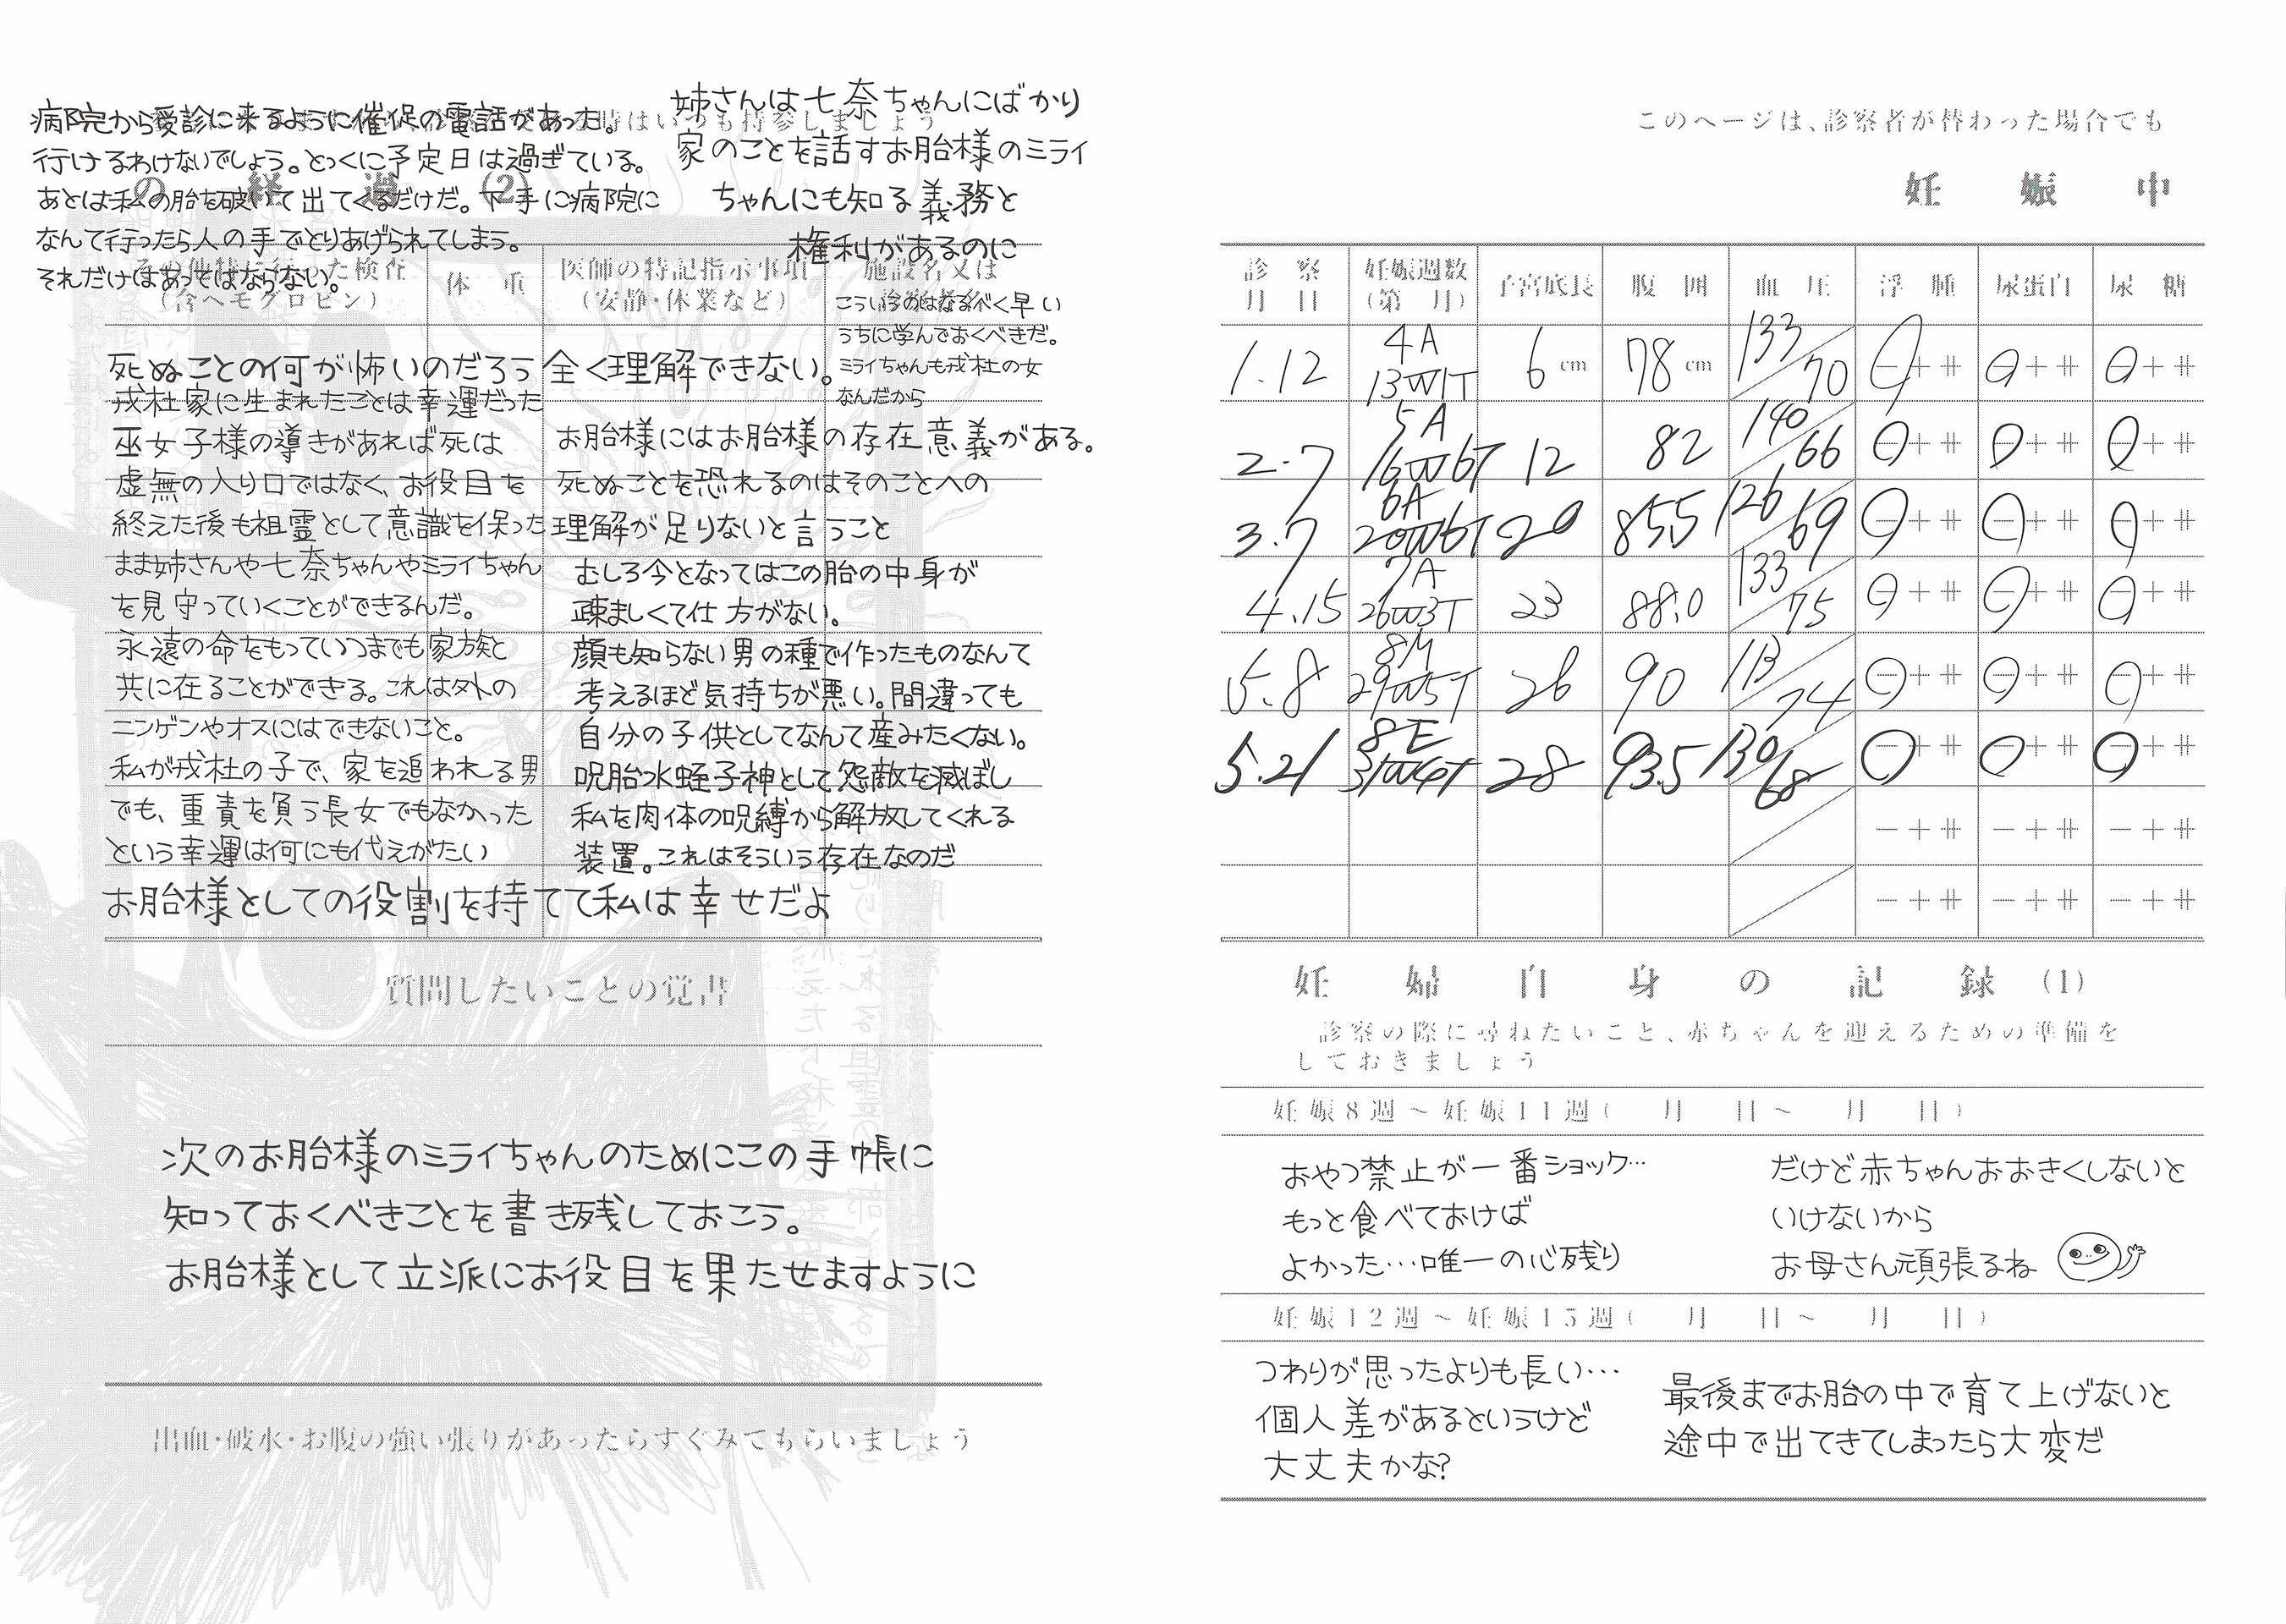 病院から受診に来るように催促の電話があった。
行けるわけないでしょう。とっくに予定日は過ぎている。
あとは私の胎を破いて出てくるだけだ。下手に病院に
なんて行ったら人の手でとりあげられてしまう。
それだけはあってはならない。
姉さんは七奈ちゃんにばかり
家のことを話すお胎様のミライ
ちゃんにも知る義務と
権利があるのに
こういうのはなるべく早い
うちに学んでおくべきだ。
ミライちゃんも戎杜の女
なんだから
時はいつも持参しましょう
の経過(2)
その他特に行った検査
(含ヘモグロビン)
体重
医師の特記指示事項
(安静・休業など)
施設名又は
死ぬことの何が怖いのだろう全く理解できない。
戎杜家に生まれたことは幸運だった
巫女子様の導きがあれば死は
虚無の入り口ではなく、お役目を
終えた後も祖霊として意識を保った
まま姉さんや七奈ちゃんやミライちゃん
を見守っていくことができるんだ。
永遠の命をもっていつまでも家族と
共に在ることができる。これは外の
ニンゲンやオスにはできないこと。
私が戎杜の子で、家を追われる男
でも、重責を負う長女でもなかった
という幸運は何にも代えがたい
お胎様としての役割を持てて私は幸せだよ
お胎様にはお胎様の存在意義がある。
死ぬことを恐れるのはそのことへの
理解が足りないと言うこと
むしろ今となってはこの胎の中身が
疎ましくて仕方がない。
顔も知らない男の種で作ったものなんて
考えるほど気持ちが悪い。間違っても
自分の子供としてなんて産みたくない。
呪胎水蛭子神として怨敵を滅ぼし
私を肉体の呪縛から解放してくれる
装置。これはそういう存在なのだ
質問したいことの覚書
次のお胎様のミライちゃんのためにこの手帳に
知っておくべきことを書き残しておこう。
お胎様として立派にお役目を果たせますように
出血・破水・お腹の強い張りがあったらすぐみてもらいましょう
このページは、診察者が替わった場合でも
妊娠中
診察月日 妊娠週数(第 月) 子宮底長 腹囲 血圧 浮腫 尿蛋白 尿糖
1.12 4A 13W1T 6cm 78cm 133/70 - + ⧺ - + ⧺ - + ⧺
2.7 5A 16W6T 12 82 140/66 - + ⧺ - + ⧺ - + ⧺
3.7 6A 20W6T 20 855 126/69 - + ⧺ - + ⧺ - + ⧺
4.15 7A 26W3T 23 88.0 133/75 - + ⧺ - + ⧺ - + ⧺
5.8 8M 29W5T 26 90 113/74 - + ⧺ - + ⧺ - + ⧺
5.21 8E 31W4T 28 93.5 130/68 - + ⧺ - + ⧺ - + ⧺
- + ⧺ - + ⧺ - + ⧺
- + ⧺ - + ⧺ - + ⧺
妊婦自身の記録(1)
診察の際に尋ねたいこと、赤ちゃんを迎えるための準備を
しておきましょう
妊娠8週~妊娠11週( 月 日~ 月 日)
おやつ禁止が一番ショック…
もっと食べておけば
よかった…唯一の心残り
だけど赤ちゃんおおきくしないと
いけないから
お母さん頑張るね
妊娠12週~妊娠15週( 月 日~ 月 日)
つわりが思ったよりも長い…
個人差があるというけど
大丈夫かな?
最後までお胎の中で育て上げないと
途中で出てきてしまったら大変だ